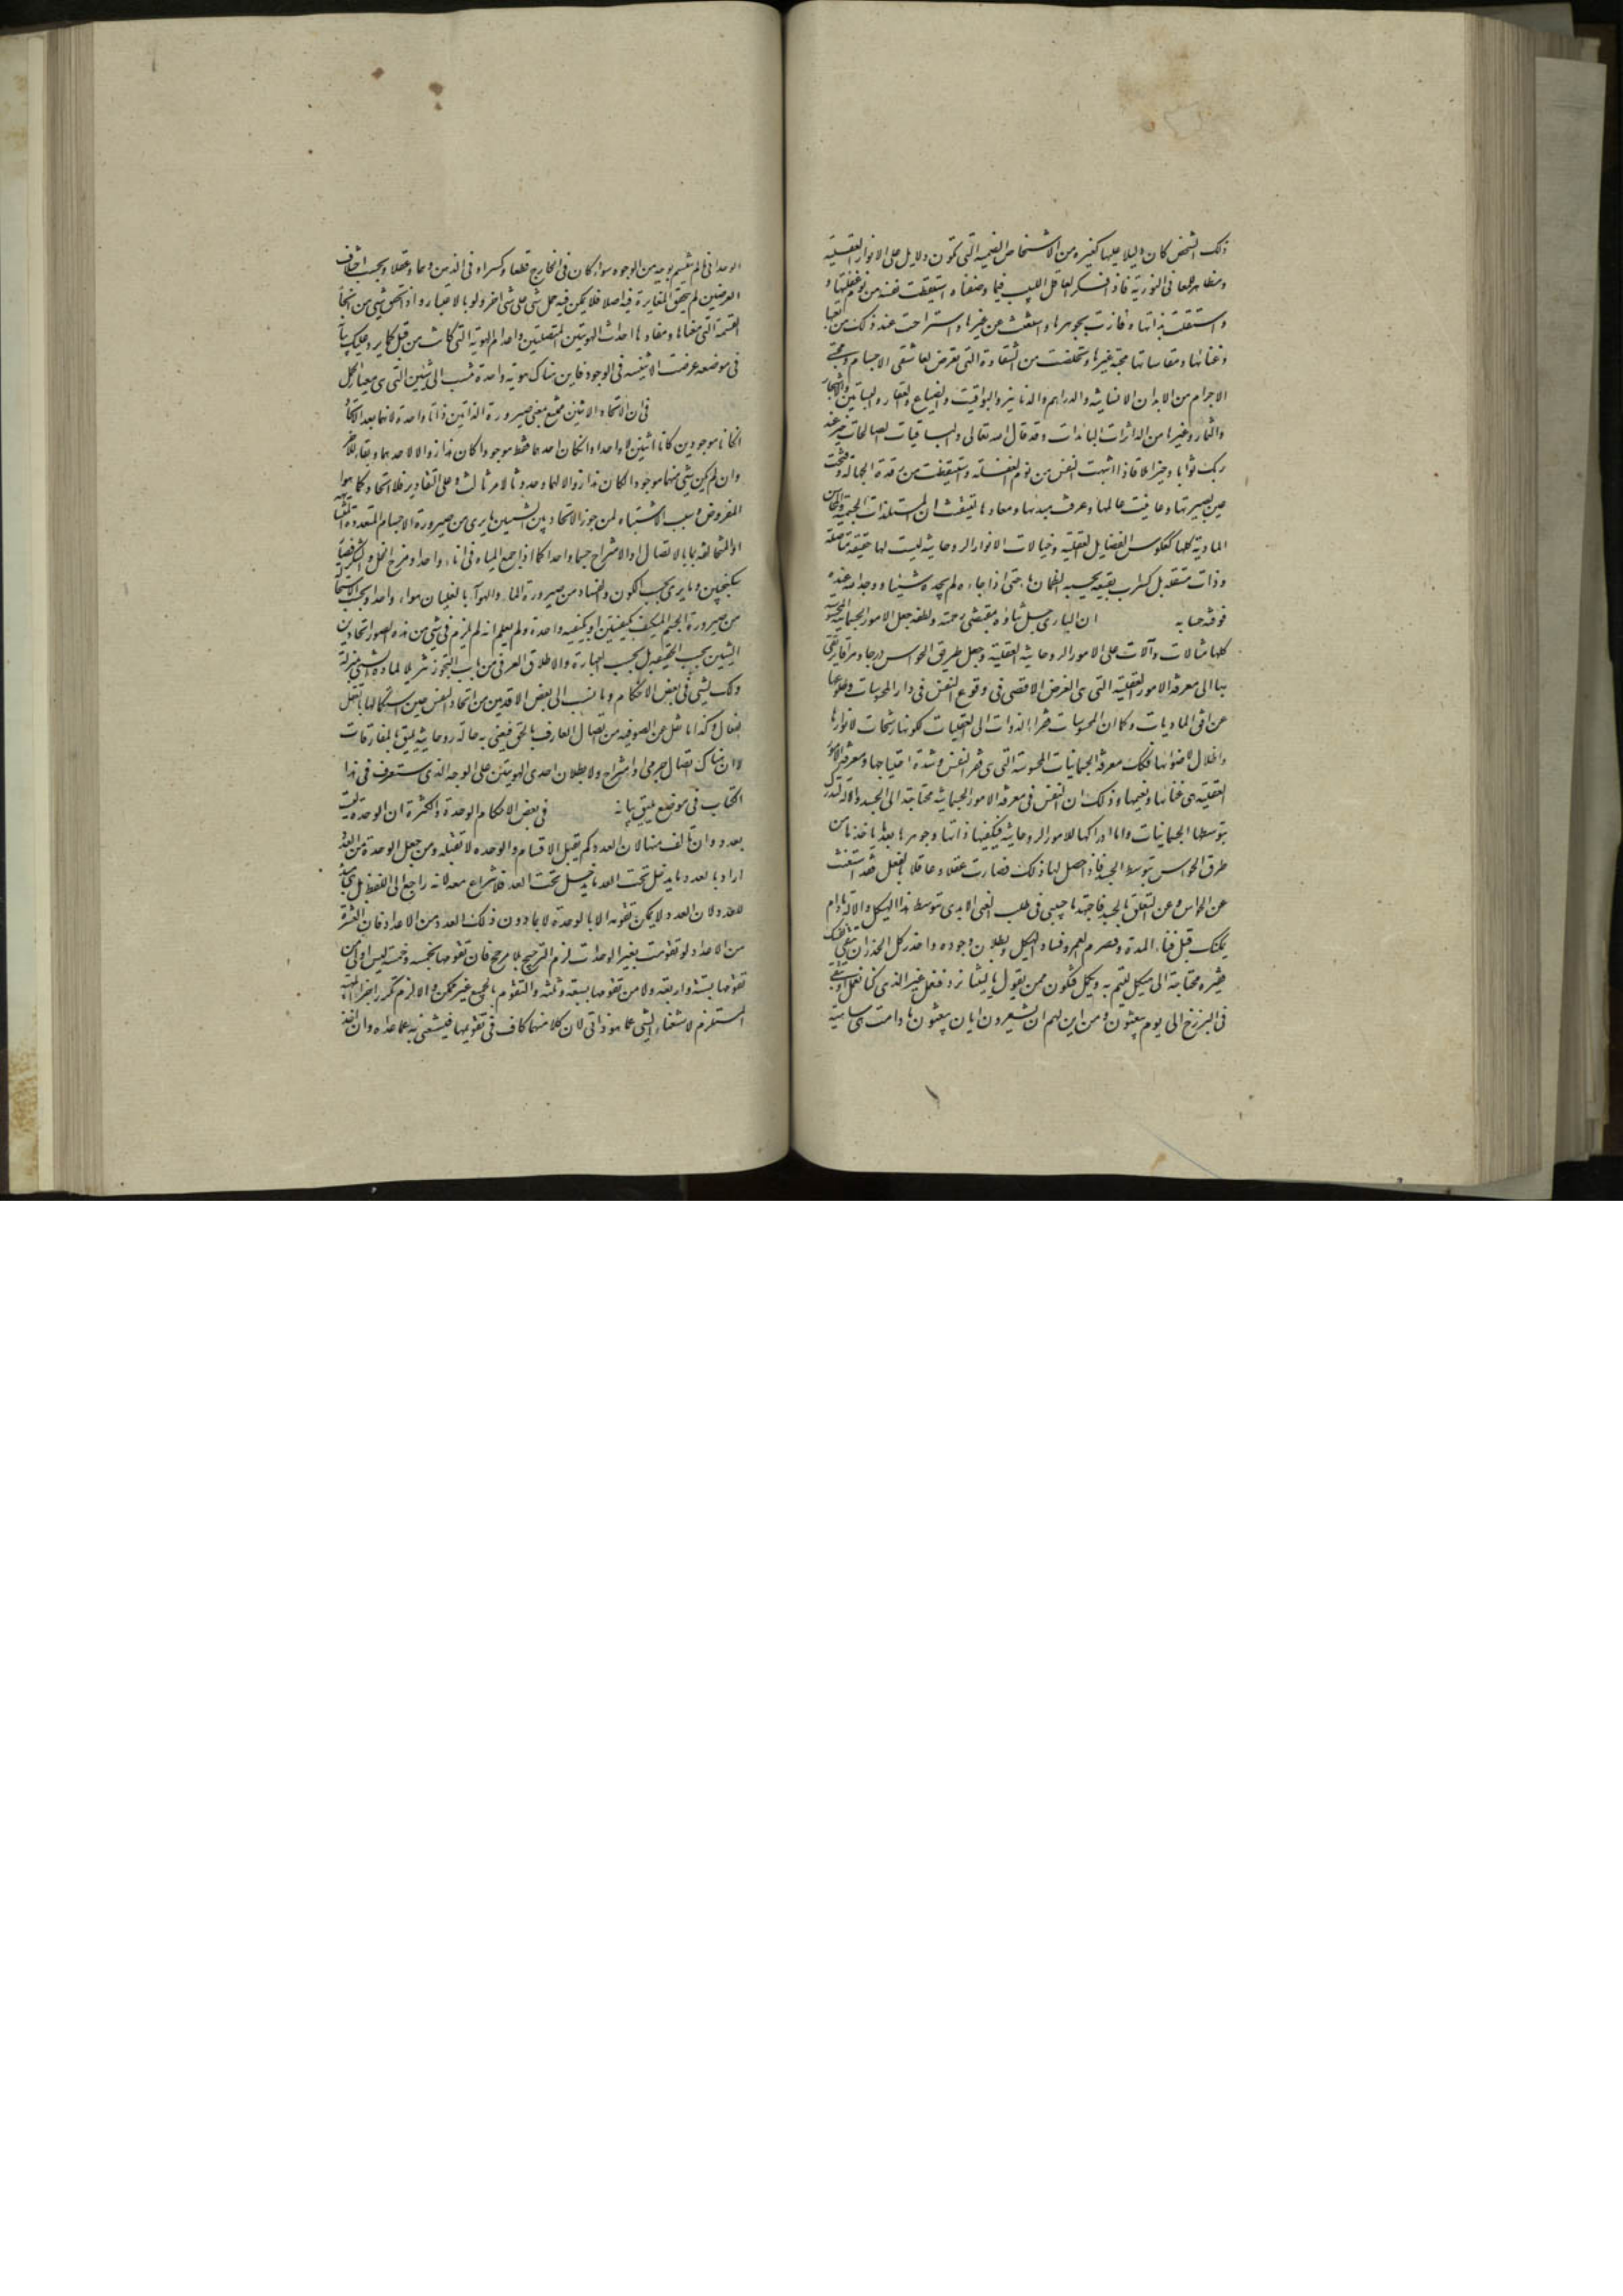 ذلك الشخص كان دليلا عليها كغيره من الاشخاص الصنمية التى تكون دلايل على الانوار العقلية
ومظاهر للمعانى النورية فاذا افتكر العاقل اللبيب فيما وصفناه استيقظت نفسه من نوم غفلتها و
واستقلت بذاتها وفازت بجوهرها واستغنت عن غيرها واستراحت عند ذلك من تعبها
وعنائها ومقاساتها محبة غيرها وتخلصت من الشقاوة التى تعرض لعاشقى الاجسام ومحبى
الاجرام من الابدان الانسانية والدراهم والدنانير واليواقيت والضياع والعقار والبساتين والاشجار
والثمار وغيرها من الداثرات البائدات وقد قال الله تعالى والباقيات الصالحات خير عند
ربك ثوابا وخير املا فاذا انتبهت النفس من نوم الغفلة واستيقظت من رقدة الجهالة وفتحت
عين بصيرتها وعاينت عالمها وعرفت مبدئها ومعادها تيقنت ان المستلذات الجسمية والمحاسن
المادية كلها كعكوس الفضايل العقلية وخيالات الانوار الروحانية ليست لها حقيقة متاصلة
وذات مستقلة بل كسراب بقيعة يحسبه الظمان ماء حتى اذا جاءه لم يجده شيئا ووجد الله عنده
فوفيه حسابه ان البارى جل شانه بمقتضى رحمته ولطفه جعل الامور الجسمانية المحسوسة
كلها مثالات وآلات على الامور الروحانية العقلية وجعل طريق الحواس درجا ومراقى يرتقى
بها الى معرفة الامور العقلية التى هى الغرض الاقصى فى وقوع النفس فى دار المحسوسات وطلوعها
عن افق الماديات وكما ان المحسوسات فقراء الذوات الى العقليات لكونها رشحات لانوارها
واظلال لاضوائها فكذلك معرفة الجسمانيات المحسوسة التى هى فقر النفس وشدة احتياجها ومعرفة الامور
العقلية هى غنائها ونعيمها وذلك ان النفس فى معرفة الامور الجسمانية محتاجة الى الجسد والآلة لتدرك
بتوسطها الجسمانيات واما ادراكها للامور الروحانية فيكفيها ذاتها وجوهرها بعد ما ياخذها من
طرق الحواس بتوسط الجسد فاذا حصل لها ذلك فصارت عقلا وعاقلا بالفعل فقد استغنت
عن الحواس وعن التعلق بالجسد فاجتهد يا حبيبى فى طلب الغنى الابدى بتوسط هذا الهيكل وآلاته مادام
يمكنك قبل فناء المدة وتصرم العمر وفساد الهيكل وبطلان وجوده واحذر كل الحذر ان تبقى نفسك
فقيرة محتاجة الى هيكل لتتم به وتكمل فتكون ممن يقول يا ليتنا نرد فنعمل غير الذى كنا نعمل او تبقى
فى البرزخ الى يوم يبعثون ومن اين لهم ان يشعرون ايان يبعثون ما دامت هى ساهية
الوحدانى مالم ينقسم بوجه من الوجوه سواء كان فى الخارج قطعا وكسرا او فى الذهن وهما وعقلا وبحسب اختلاف
العرضين لم يتحقق المغايرة فيه اصلا فلا يمكن فيه حمل شى على شى اخر ولو بالاعتبار واذا تحقق شى من انحاء
القسمة التى معناها ومفادها احداث الهويتين المتصلتين واعدام الهوية التى كانت من قبل كما يرد عليك بيانه
فى موضعه عرضت الاثنينية فى الوجود فاين هناك هوية واحدة تنسب الى شيئين التى هى معيار الحمل
فى ان اتحاد الاثنين ممتنع بمعنى صيرورة الذاتين ذاتا واحدة لانهما بعد الاتحاد
ان كانا موجودين كانا اثنين لا واحدا وان كان احدهما فقط موجودا كان هذا زوالا لاحدهما وبقاء للاخر
وان لم يكن شى منهما موجودا لكان هذا زوالا لهما وحدوثا لامر ثالث وعلى التقادير فلا اتحاد كما هو
المفروض وسبب الاشتباه لمن جوز الاتحاد بين الشيئين ما يرى من صيرورة الاجسام المتعددة المتشابهة
او المتخالفة بابا لاتصال او الامتزاج جسما واحدا كما اذا جمع المياه فى اناء واحد او مزج الخل والسكر فصار
سكنجبين وما يرى بحسب الكون والفساد من صيرورة الماء والهواء بالغليان هواء واحدا وبحسب الاستحالة
من صيرورة الجسم المتكيف بكيفيتين ذا كيفية واحدة ولم يعلم انه لم يلزم فى شى من هذه الصور اتحاد بين
الشيئين بحسب الحقيقة بل بحسب العبارة والاطلاق العرفى من باب التجوز تنزيلا لمادة الشى منزلة
ذلك الشى فى بعض الاحكام وما ينسب الى بعض الاقدمين من اتحاد النفس حين استكمالها بالعقل
الفعال وكذا ما نقل عن الصوفية من اتصال العارف بالحق فيعنى به حالة روحانية تليق بالمفارقات
لا ان هناك اتصال جرمى وامتزاج ولا بطلان احدى الهويتين على الوجه الذى ستعرف فى هذا
الكتاب فى موضع يليق بيانه فى بعض الاحكام الوحدة والكثرة ان الوحدة ليست
بعدد وان تالف منها لان العدد كم يقبل الانقسام والوحدة لا تقبله ومن جعل الوحدة من العدد
اراد بالعدد ما يدخل تحت العد فلا نزاع معه لانه راجع الى اللفظ بل هى مبدء
للعدد لان العدد لا يمكن تقومه الا بالوحدة لا بما دون ذلك العدد من الاعداد فان العشرة
من الاعداد لو تقومت بغير الوحدات لزم الترجيح بلا مرجح فان تقومها بخمسة وخمسة ليس اولى من
تقومها بستة واربعة ولا من تقومها بسبعة وثلثة والتقوم بالجميع غير ممكن والا لزم تكرر اجزاء الماهية
المستلزم لاستغناء الشى عما هو ذاتى لان كلا منها كاف فى تقويمها فيستغنى به عما عداه وان اخذ